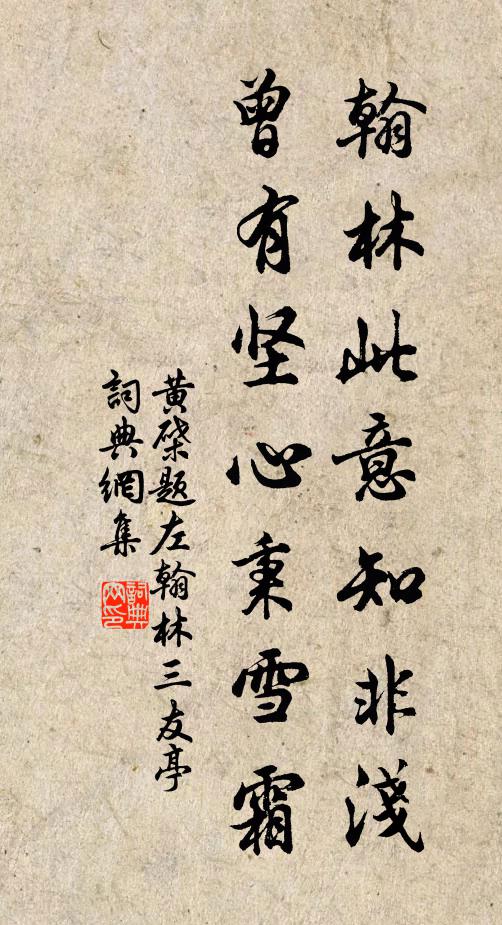 翰林此意知非淺
曾有坚心秉雪霜
黃棨题左翰林三友亭
詞典網集
詞典網印